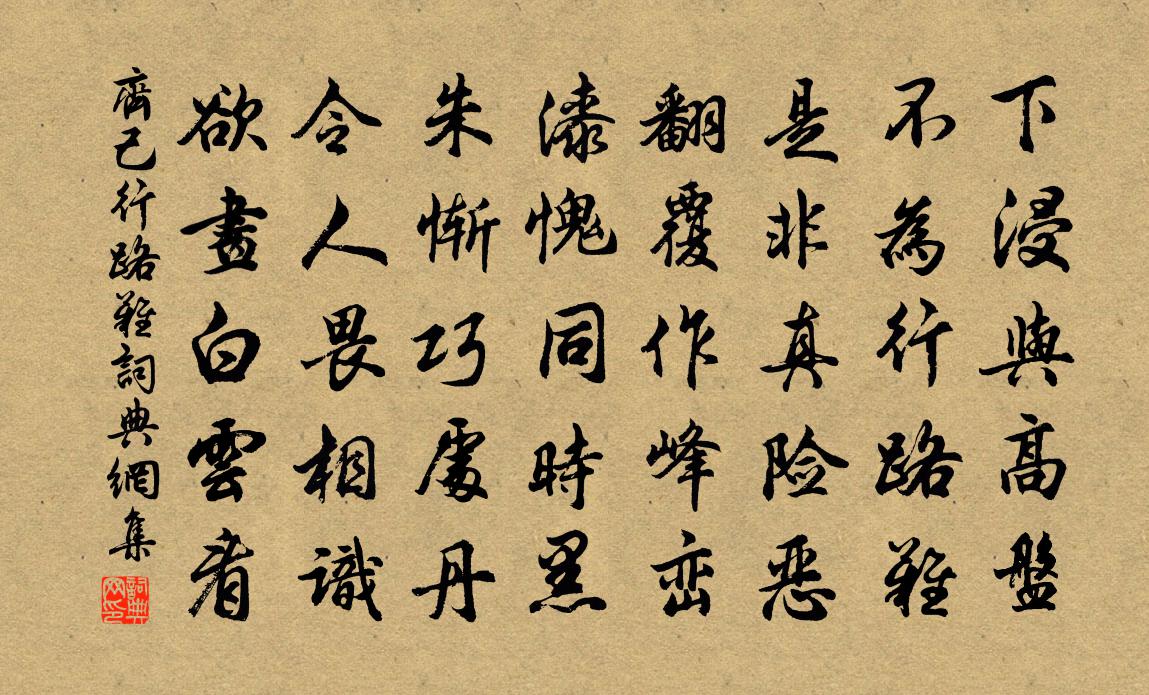 下浸與高盤
不為行路難
是非真险恶
翻覆作峰峦
漆愧同時黑
朱慚巧處丹
令人畏相識
欲畫白雲看
齊己行路難詞典網集
詞典网印